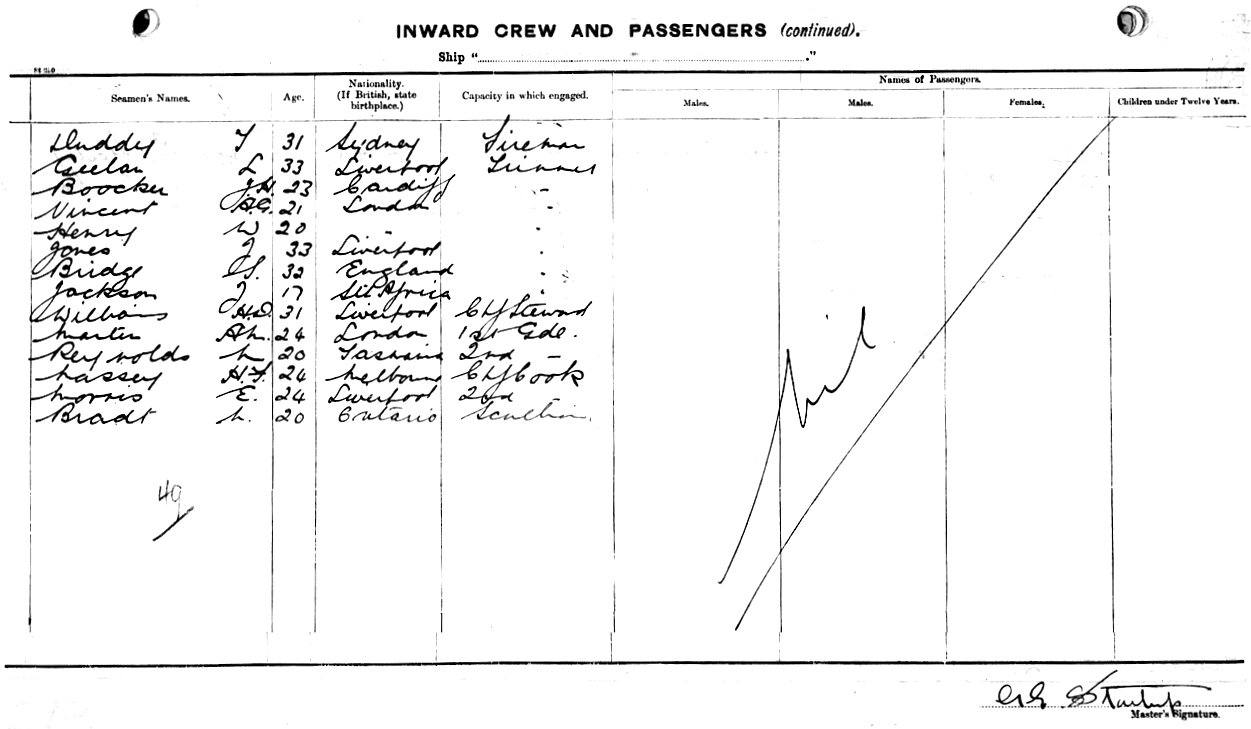 INWARD CREW AND PASSENGERS (continued).
Ship "..........."
Names of Passengers.
Seamen's Names. Age. Nationality. (If British, state birthplace.) Capacity in which engaged. Males. Males. Females. Children under Twelve Years.
Duddy T 31 Sydney Fireman
Geelan L 33 Liverpool Trimmer
Boocker J.H. 23 Cardiff -
Vincent A.G. 21 London -
Henry W 20 - -
Jones J 33 Liverpool
Bridge 32 England
Jackson J 17 Sth Africa
Williams H.D. 31 Liverpool Chf Steward
Martin 24 London 1st Gde.
Reynolds 20 Tasmania 2nd -
Massey H.F. 24 Melbourne Chf Cook
Morris E. 24 Liverpool 2nd -
Bradt 20 Ontario Scullion
Nil
49
Master's Signature.